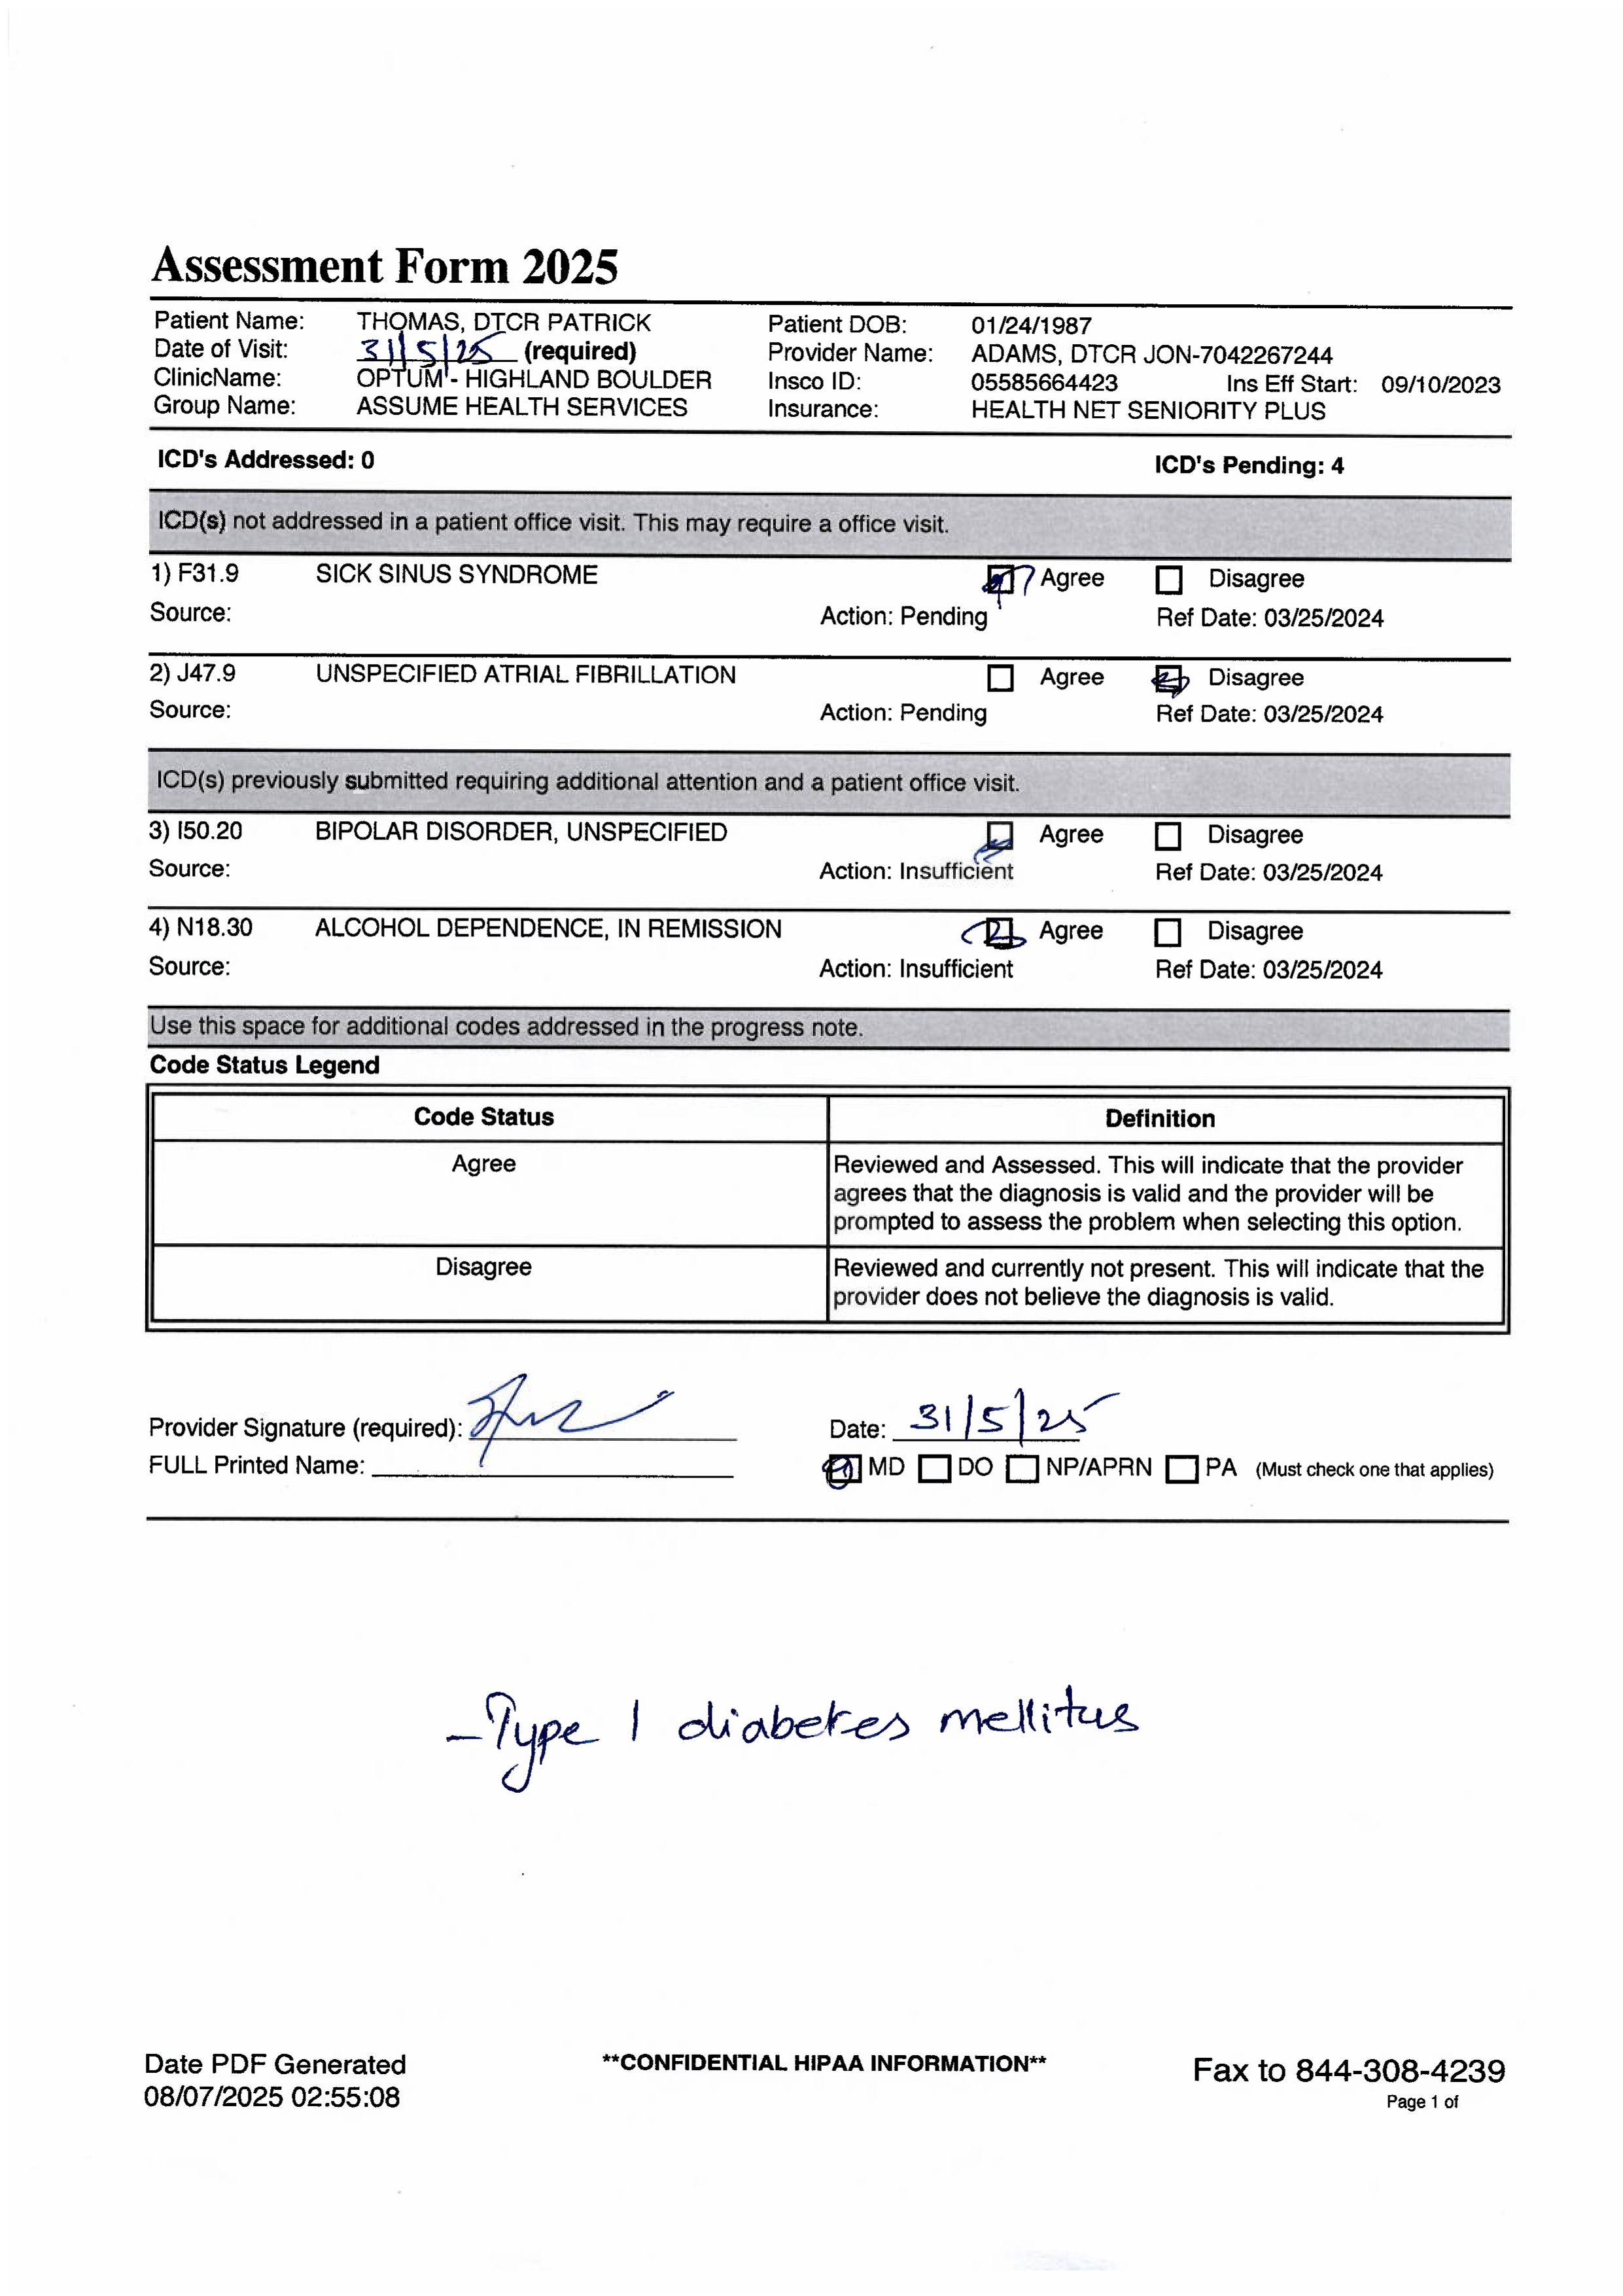 Assessment Form 2025
Patient Name: THOMAS, DTCR PATRICK Patient DOB: 01/24/1987
Date of Visit: 31/5/25 (required) Provider Name: ADAMS, DTCR JON-7042267244
ClinicName: OPTUM - HIGHLAND BOULDER Insco ID: 05585664423 Ins Eff Start: 09/10/2023
Group Name: ASSUME HEALTH SERVICES Insurance: HEALTH NET SENIORITY PLUS
ICD's Addressed: 0 ICD's Pending: 4
ICD(s) not addressed in a patient office visit. This may require a office visit.
1) F31.9 SICK SINUS SYNDROME Agree Disagree
Source: Action: Pending Ref Date: 03/25/2024
2) J47.9 UNSPECIFIED ATRIAL FIBRILLATION Agree Disagree
Source: Action: Pending Ref Date: 03/25/2024
ICD(s) previously submitted requiring additional attention and a patient office visit.
3) I50.20 BIPOLAR DISORDER, UNSPECIFIED Agree Disagree
Source: Action: Insufficient Ref Date: 03/25/2024
4) N18.30 ALCOHOL DEPENDENCE, IN REMISSION Agree Disagree
Source: Action: Insufficient Ref Date: 03/25/2024
Use this space for additional codes addressed in the progress note.
Code Status Legend
Code Status Definition
Agree Reviewed and Assessed. This will indicate that the provider
agrees that the diagnosis is valid and the provider will be
prompted to assess the problem when selecting this option.
Disagree Reviewed and currently not present. This will indicate that the
provider does not believe the diagnosis is valid.
Provider Signature (required): Date: 31/5/25
FULL Printed Name: MD DO NP/APRN PA (Must check one that applies)
- Type 1 diabetes mellitus
Date PDF Generated **CONFIDENTIAL HIPAA INFORMATION** Fax to 844-308-4239
08/07/2025 02:55:08 Page 1 of